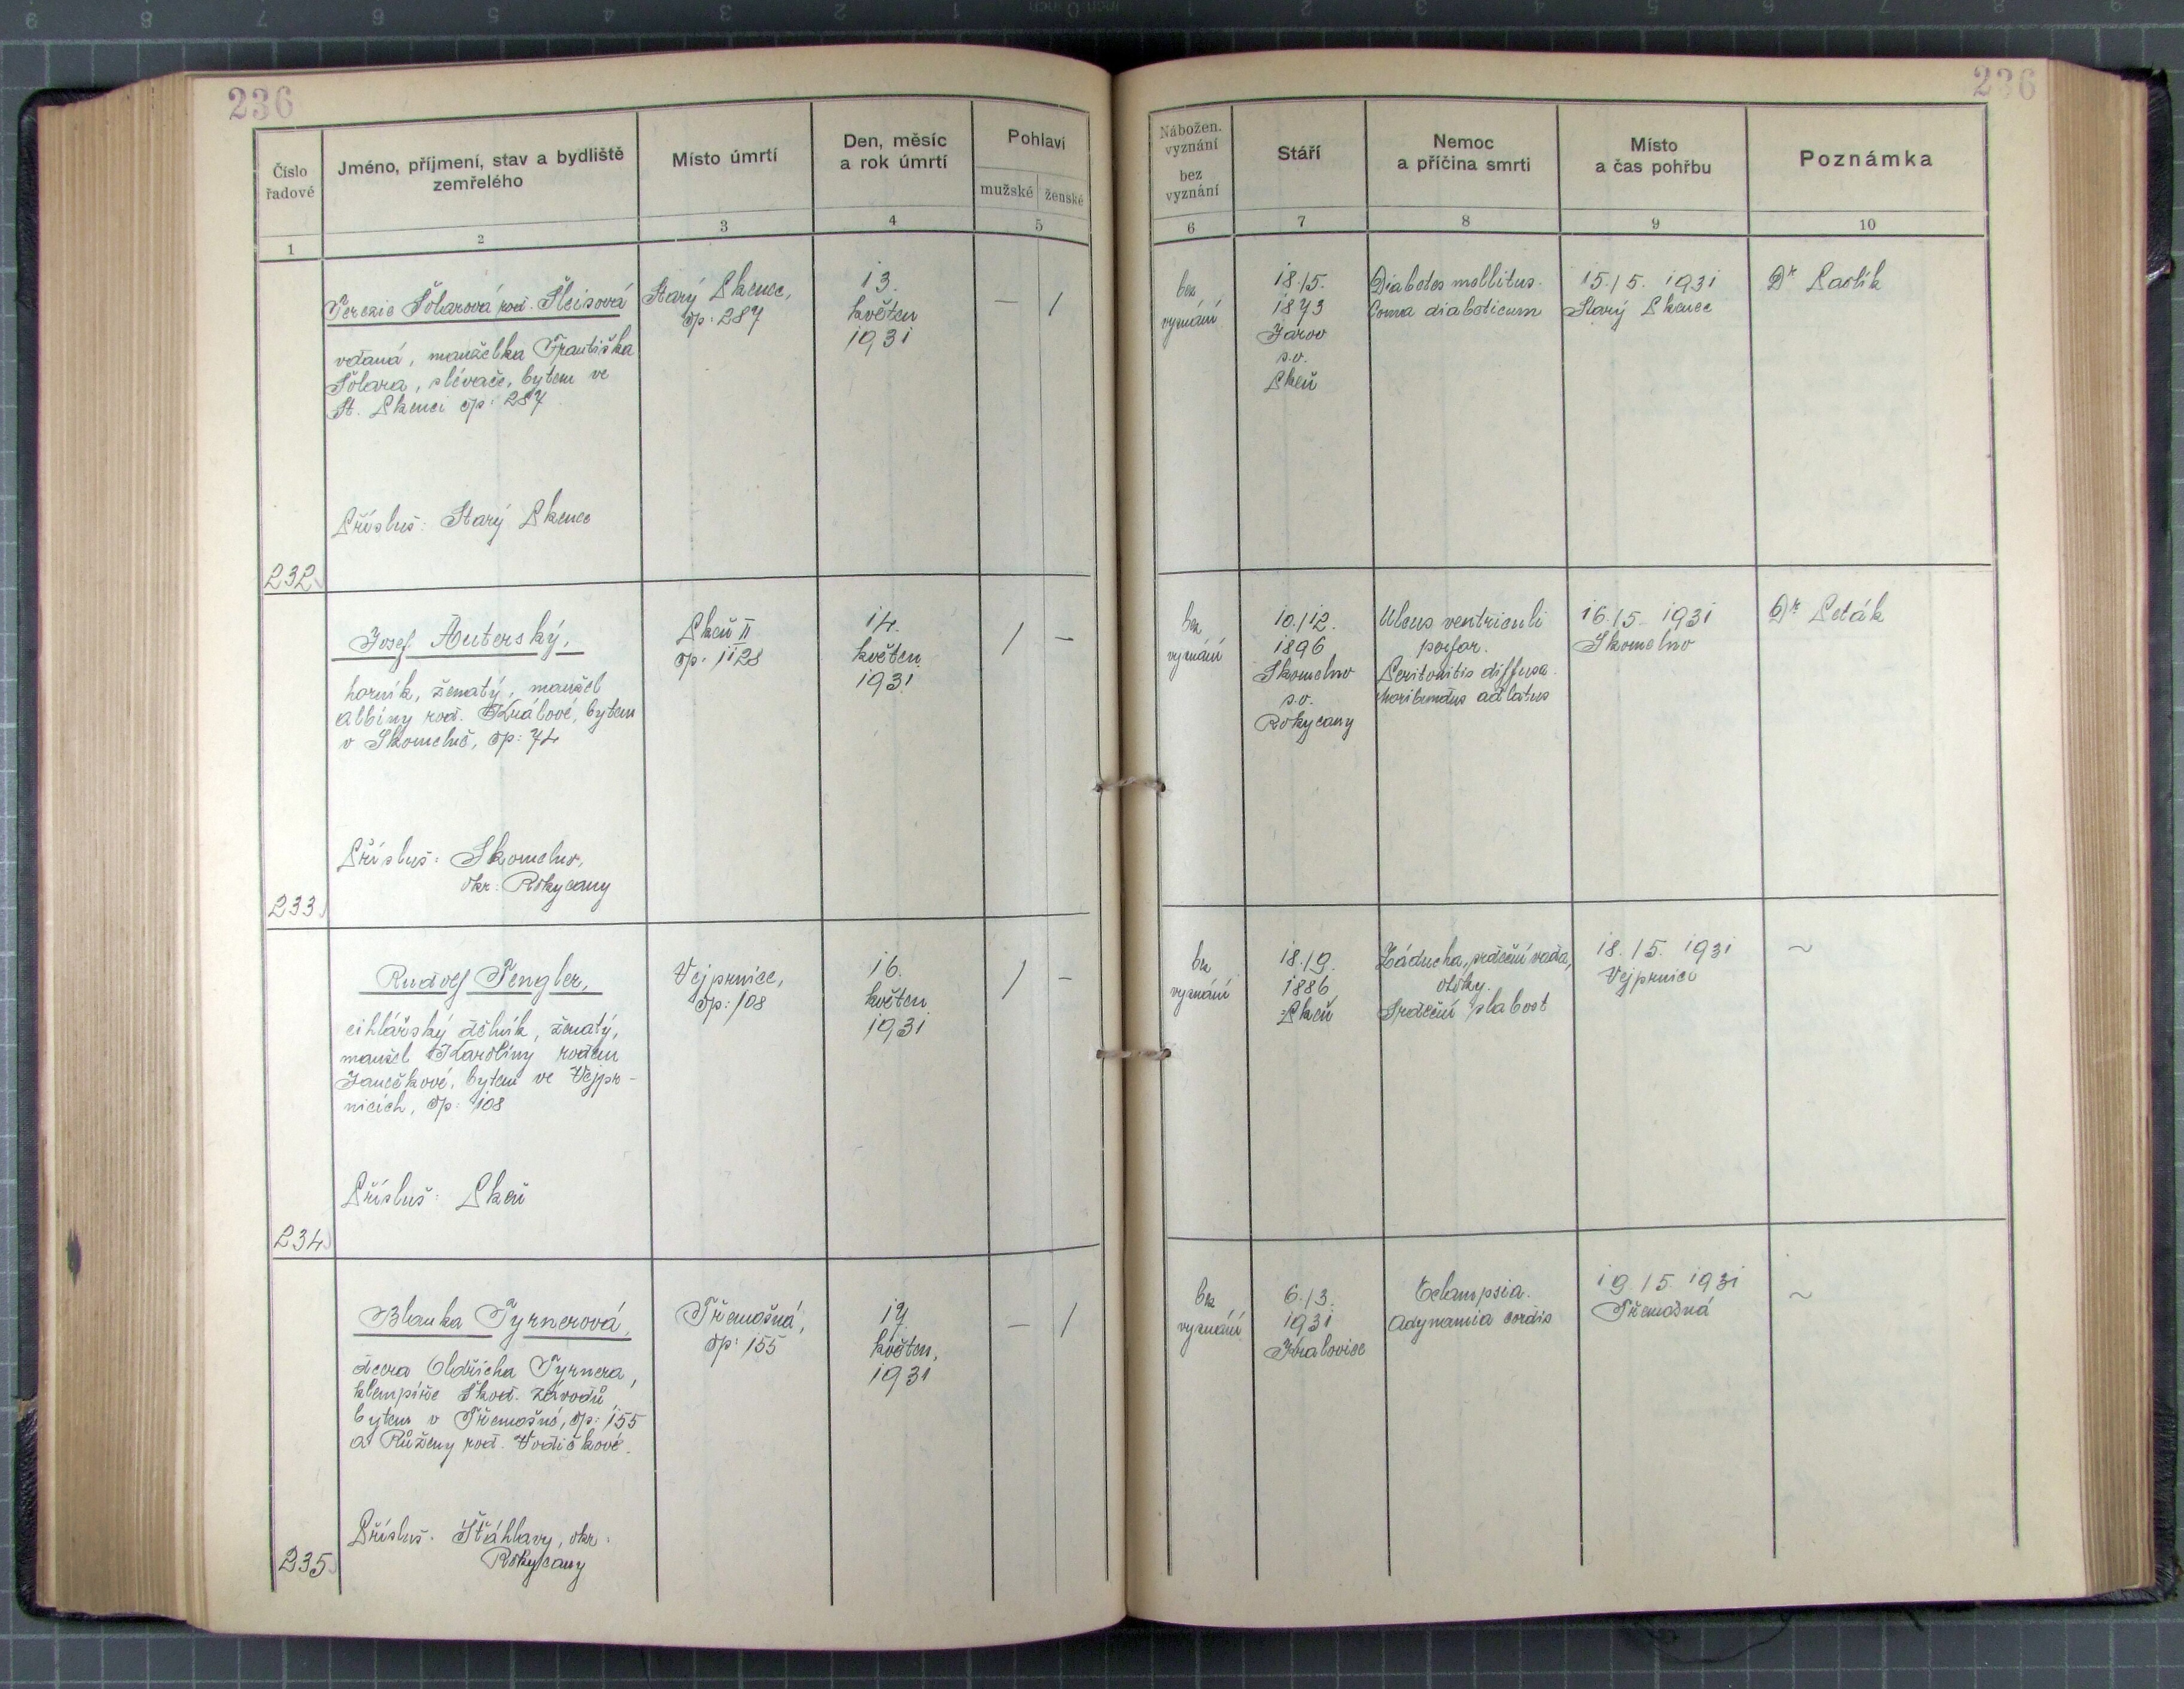 236
Číslo
řadové
Jméno, příjmení, stav a bydliště
zemřelého
Místo úmrtí
Den, měsíc
a rok úmrtí
Pohlaví
mužské
ženské
1
2
3
4
5
Terezie Šolarová roz. Šleisová
vdaná, manželka Františka
Šolara, slévače, bytem ve
St. Plzenci čp: 287
Přísluš: Starý Plzenec
232
Starý Plzenec,
čp: 287
13.
květen
1931
— /
Josef Auterský,
horník, ženatý, manžel
Albíny roz. Králové, bytem
v Skomelně, čp: 74
Přísluš: Skomelno,
okr: Rokycany
233
Plzeň II
čp: 1128
14.
květen
1931
/ —
Rudolf Pengler,
cihlářský dělník, ženatý,
manžel Karolíny rozen
Janečkové, bytem ve Vejpr-
nicích, čp: 108
Přísluš: Plzeň
234
Vejprnice,
čp: 108
16.
květen
1931
/ —
Blanka Tyrnerová,
dcera Oldřicha Tyrnera,
klempíře Škod. závodů,
bytem v Třemošné, čp: 155
a Růženy roz. Vodičkové.
Přísluš: Štáhlavy, okr:
Rokycany
235
Třemošná,
čp: 155
17.
květen,
1931
— /
236
Nábožen.
vyznání
bez
vyznání
Stáří
Nemoc
a příčina smrti
Místo
a čas pohřbu
Poznámka
6
7
8
9
10
bez
vyznání
18./5.
1873
Žarov
s.o.
Plzeň
Diabetes mellitus.
Coma diabeticum
15./5. 1931
Starý Plzenec
Dr Pavlík
bez
vyznání
10./12.
1896
Skomelno
s.o.
Rokycany
Ulcus ventriculi
perfor.
Peritonitis diffusa.
Moribundus adlatus
16./5. 1931
Skomelno
Dr Peták
bez
vyznání
18./9.
1886
Plzeň
Záducha, srdeční vada,
otoky.
Srdeční slabost
18./5. 1931
Vejprnice
~
bez
vyznání
6./3.
1931
Kralovice
Eclampsia.
Adynamia cordis
19./5. 1931
Třemošná
~